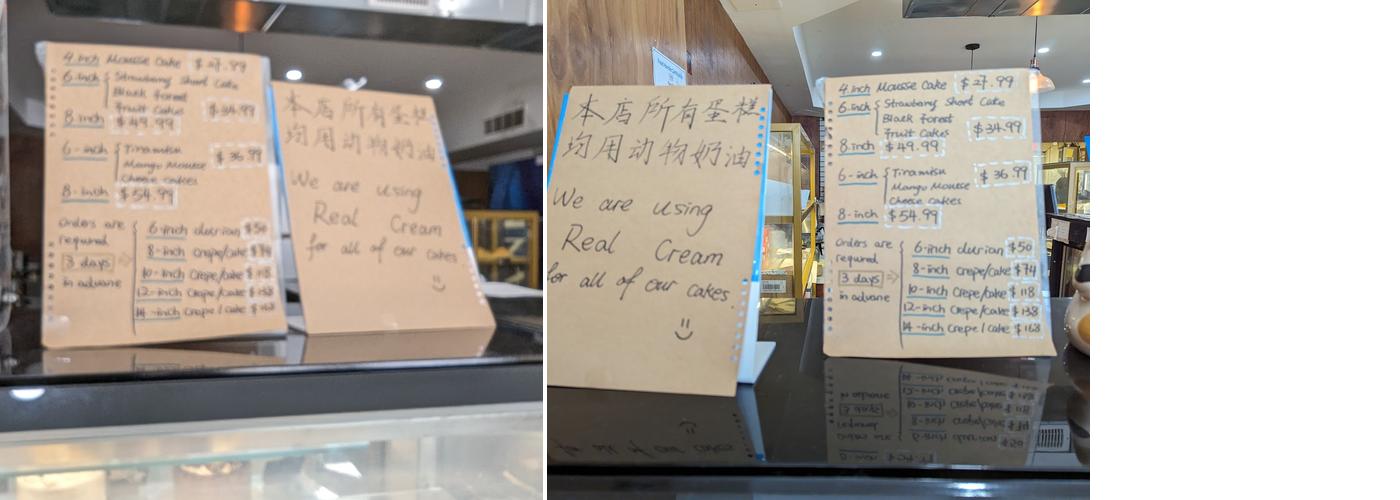 4 inch Mousse Cake $27.99
6-inch Strawberry Short Cake
Black Forest
Fruit Cakes $34.99
8 inch $49.99
6-inch Tiramisu
Mango Mousse $36.99
Cheese cakes
8-inch $54.99
Orders are
required
3 days
in advane
6-inch durian $50
8-inch crepe/cake $74
10-inch Crepe/cake $118
12-inch Crepe/cake $138
14-inch Crepe/cake $168
本店所有蛋糕
均用动物奶油
We are using
Real Cream
for all of our cakes
本店所有蛋糕
均用动物奶油
We are using
Real Cream
for all of our cakes
4 inch Mousse Cake $27.99
6-inch Strawbany Short Cate
Black Forest
Fruit Cakes $34.99
8-inch $49.99
6-inch Tiramisu $36.99
Mango Mousse
Cheese cakes
8-inch $54.99
Orders are
required
3 days
in advane
6-inch durian $50
8-inch crepe/cake $74
10-inch Crepe/cake $118
12-inch Crepe/cake $138
14-inch Crepe/cake $168